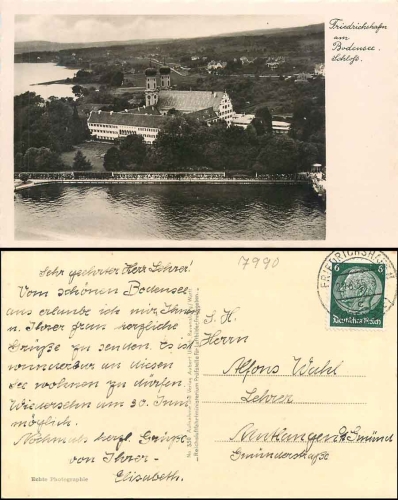 Friedrichshafen
am
Bodensee.
Schloß.
7990
Sehr geehrter Herr Lehrer!
Vom schönen Bodensee
aus erlaube ich mir Ihnen
u. Ihrer Frau herzliche
Grüße zu senden. Es ist
wunderbar an diesem
See wohnen zu dürfen.
Wiedersehn am 30. Juni
möglich.
Nochmals herzl. Grüße
von Ihrer
Elisabeth.
Echte Photographie
FRIEDRICHSHAFEN
6 6
Deutsches Reich
S. H.
Herrn
Alfons Wahl
Lehrer
Mutlangen b/ Gmünd
Gmünderstraße